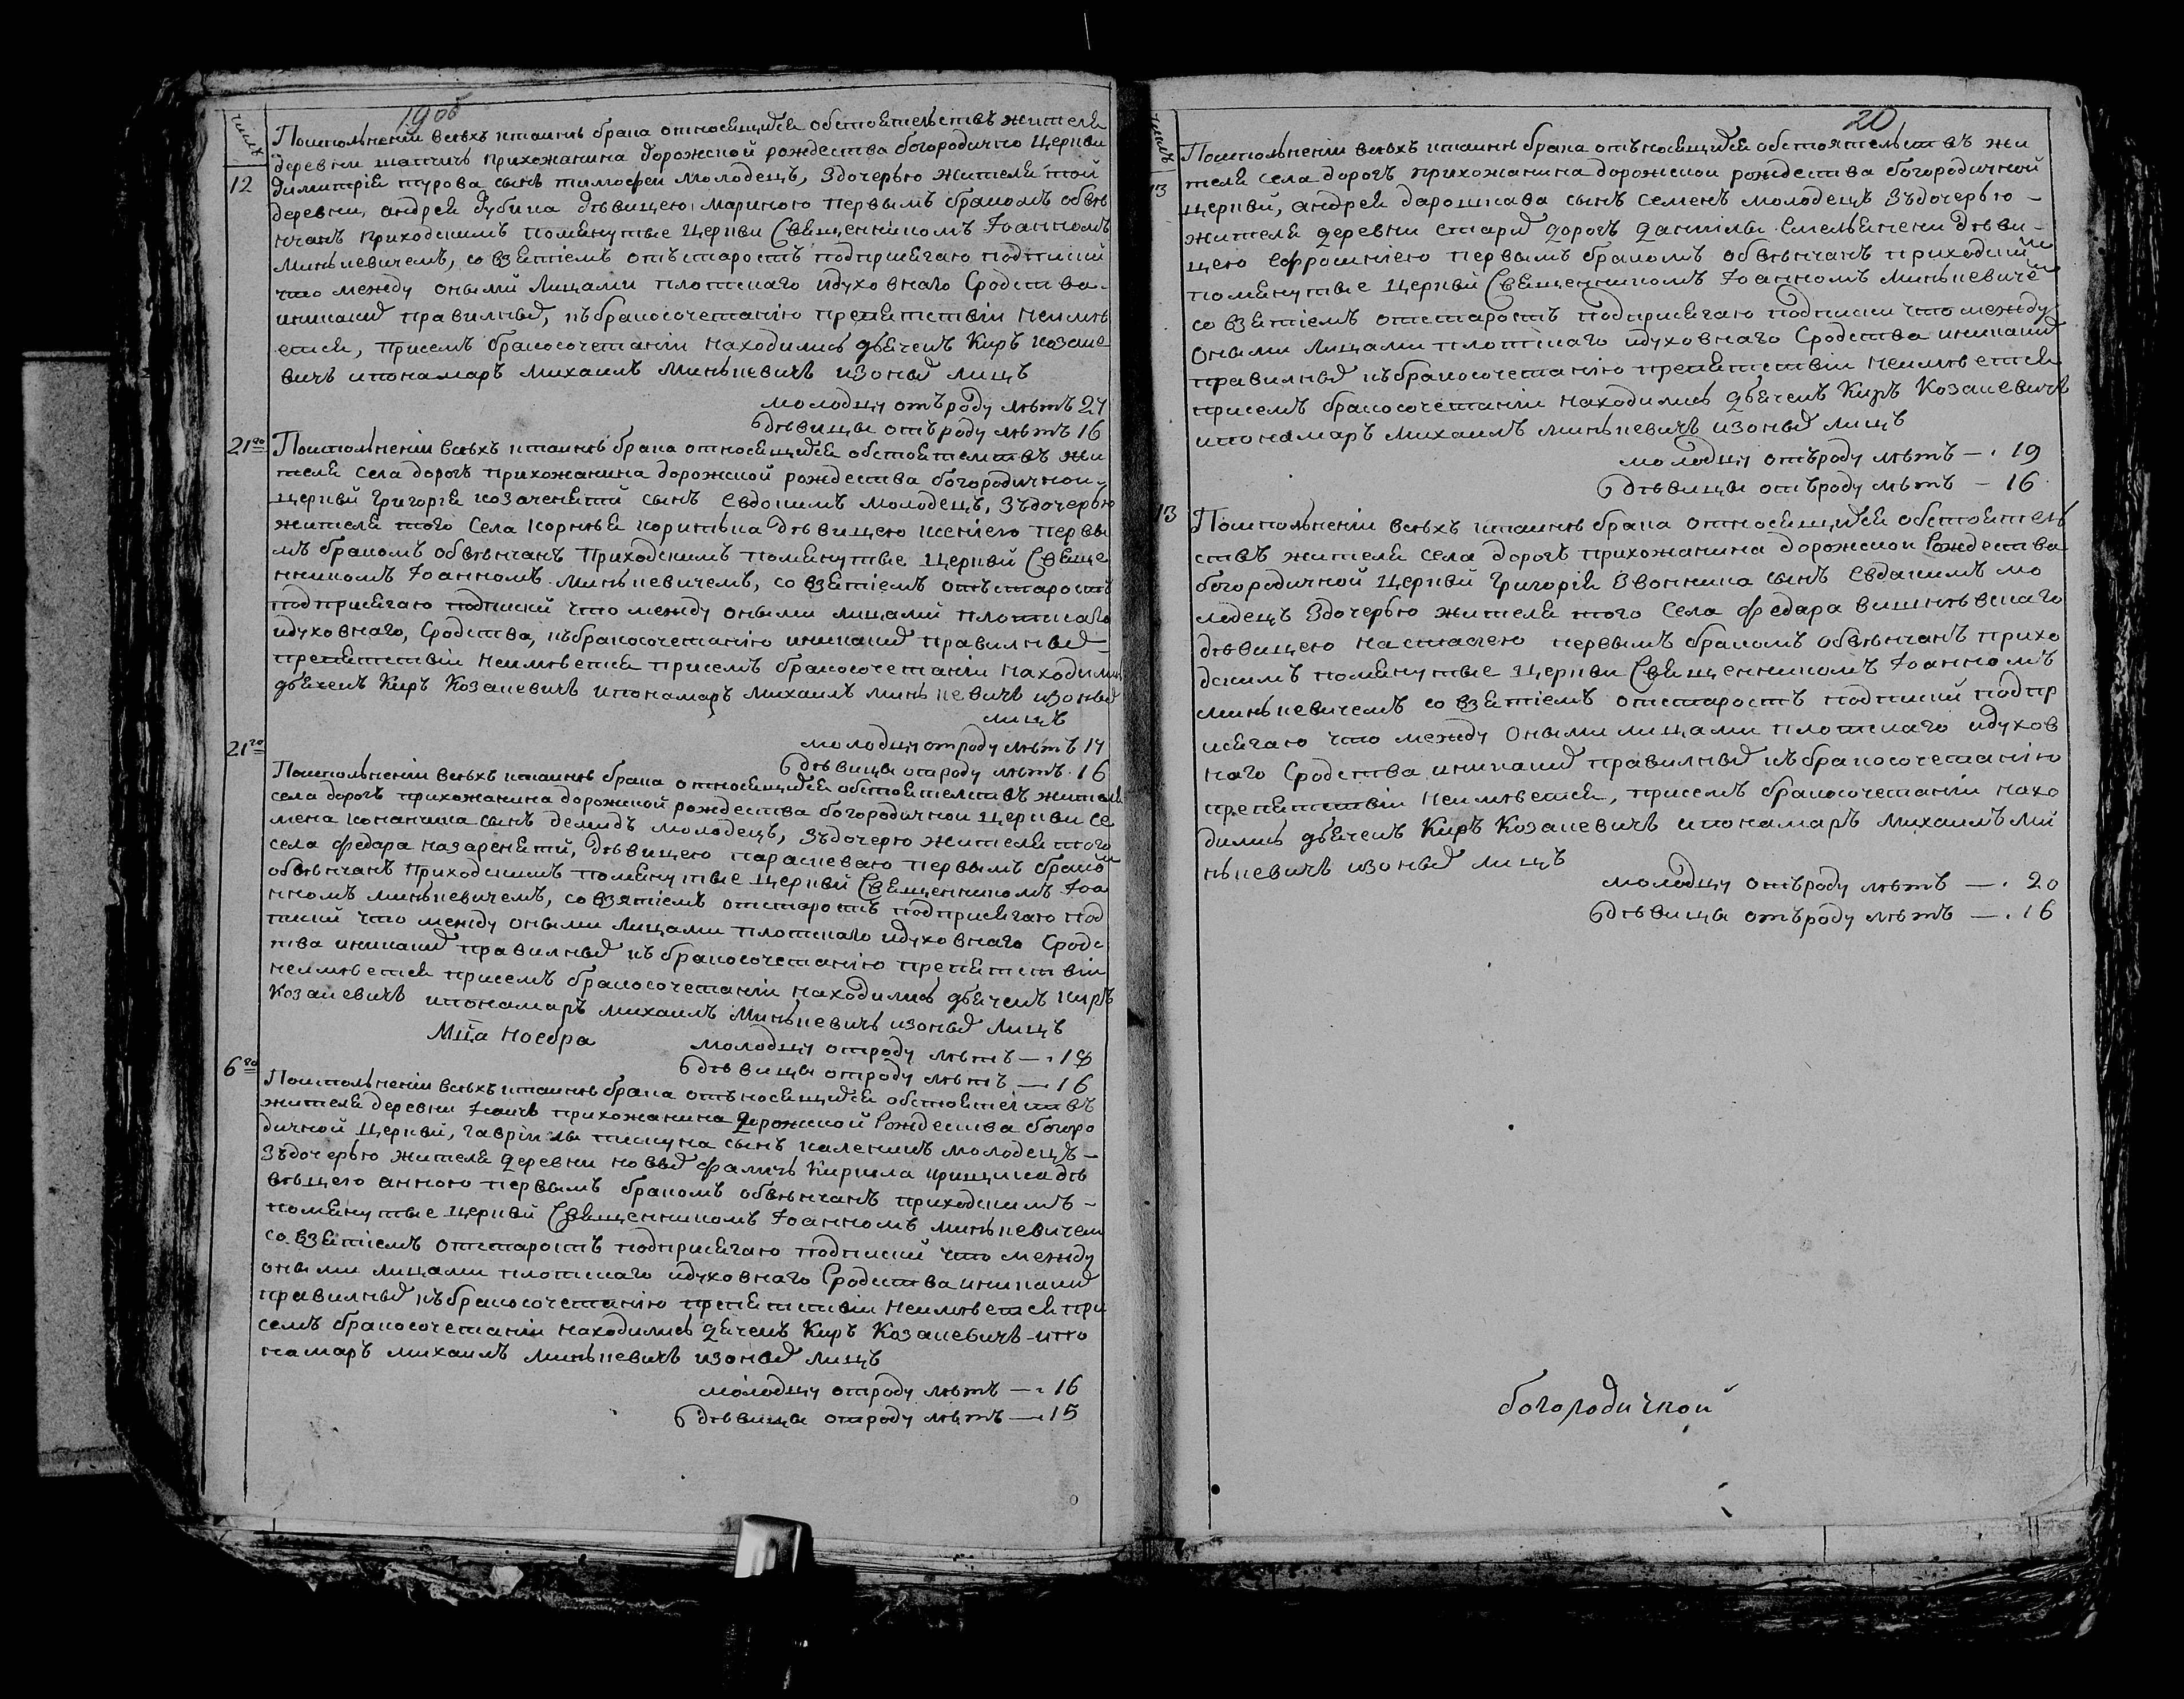 19об
числа
Поисполненіи всѣхъ ктаинѣ брака относящихся обстоятельствъ жителя
деревни шатичь прихожанина дорожской рождества богородично Церкви
12
димитрія турова сынъ тимофей молодецъ, здочерью жителя той
деревни, андрея дубика дѣвицею мариною первымъ бракомъ обвѣ
нчанъ приходскимъ помянутые Церкви Священникомъ Іоанномъ
Минькевичемъ, со взятіемъ отъ старостъ подприсягаю подписки
что между оными лицами плотскаго идуховнаго Сродства
иникаких правилных, къбракосочетанію препятствіи неимѣ
ется, присемъ бракосочетаніи находились дьячекъ Киръ козаке
вичъ ипономаръ Михаилъ Минькевичъ изоных лицъ
молодцу отъроду лѣтъ 24
адѣвицы отъроду лѣтъ 16
21го
Поисполненіи всѣхъ ктаинѣ брака относящихся обстоятелствъ жи
теля села дорогъ прихожанина дорожской рождества богородичной
церкви григорія козаченяти сынъ Евдокимъ молодецъ, зъдочерью
жителя того Села корнѣя коритька дѣвицею ксеніею первы
мъ бракомъ обвѣнчанъ Приходскимъ помянутые церкви Свяще
нникомъ Іоанномъ Минькевичемъ, со взятіемъ отъ старостъ
подприсягаю подписки что между оными лицами плотскаго
идуховнаго, Сродства, къбракосочетанію иникаких правилных
препятствіи неимѣется присемъ бракосочетаніи находились
дьячекъ Киръ Козакевичъ ипономаръ михаилъ минькевичъ изоных
лицъ
21го
молодцу отроду лѣтъ 17
адѣвицы отроду лѣтъ 16
Поисполненіи всѣхъ ктаинѣ брака относящихся обстоятелствъ жителя
села дорогъ прихожанина дорожской рождества богородичной церкви се
мена конончика сынъ демидъ молодецъ, зъдочерю жителя того
села федара назареняти, дѣвицею параскевою первымъ брако
обвѣнчанъ приходскимъ помянутые церкви Священникомъ Іоа
нномъ минькевичемъ, со взятіемъ отстаростъ подприсягаю под
писки что между оными лицами плотскаго идуховнаго Сродс
тва иникаких правилных къбракосочетанію препятствіи
неимѣется присемъ бракосочетаніи находились дьячекъ Киръ
Козакевичъ ипономаръ михаилъ Минькевичъ изоных лицъ
Мца Ноября
молодцу отроду лѣтъ — 18
6го
адѣвицы отроду лѣтъ — 16
Поисполненіи всѣхъ ктаинѣ брака отъносящихся обстоятелствъ
жителя деревни прихожанина дорожской Рождества богоро
дичной Церкви, гавріилы тискуна сынъ каленикъ молодецъ —
зъдочерью жителя деревни новых фаличь Кирила крищика дѣ
вѣцею анною первымъ бракомъ обвѣнчанъ приходскимъ —
помянутые церкви Священникомъ Іоанномъ минькевичем
со взятіемъ отстаростъ подприсягаю подписки что между
оными лицами плотскаго идуховнаго Сродства иникаких
правилных къбракосочетанію препятствіи неимѣется при
семъ бракосочетаніи находились дячекъ Киръ Козакевичъ ипо
намаръ михаилъ минькевичъ изоных лицъ
молодцу отроду лѣтъ — 16
адѣвицы отроду лѣтъ — 15
20
числа
Поисполненіи всѣхъ ктаинѣ брака отъносящихся обстоятельствъ жи
теля села дорогъ прихожанина дорожской рождества богородичной
13
церкви, андрея дарошкава сынъ семенъ молодецъ зъдочерью —
жителя деревни стария дорогъ данилы Емельянени дѣви —
цею Ефросиніею первымъ бракомъ обвѣнчанъ приходским
помянутые церкви Священникомъ Іоанномъ Минькевиче
со взятіемъ отстаростъ подприсягаю подписки что между
оными лицами плотскаго идуховнаго Сродства иникаких
правилных къбракосочетанію препятствіи неимѣется
присемъ бракосочетаніи находились дьячекъ Киръ Козакевичъ
ипономаръ михаилъ минькевичъ изоных лицъ
молодцу отъроду лѣтъ — 19
адѣвицы отъроду лѣтъ — 16
13
Поисполненіи всѣхъ ктаинѣ брака относящихся обстоятель
ствъ жителя села дорогъ прихожанина дорожской Рождества
богородичной Церкви Григорія Звонника сынъ Евдакимъ мо
лодецъ здочерью жителя того Села федара вишнѣвскаго
дѣвицею настасіею первымъ бракомъ обвѣнчанъ прихо
дскимъ помянутые Церкви Священникомъ Іоанномъ
минькевичемъ со взятіемъ отстаростъ подписки подпр
исягаю что между оными лицами плотскаго идухов
наго Сродства иникаких правилных къбракосочетанію
препятствіи неимѣется, присемъ бракосочетаніи нахо
дились дьячекъ Киръ Козакевичъ ипономаръ михаилъ ми
нькевичъ изоных лицъ
молодцу отъроду лѣтъ — 20
адѣвицы отъроду лѣтъ — 16
богородичной